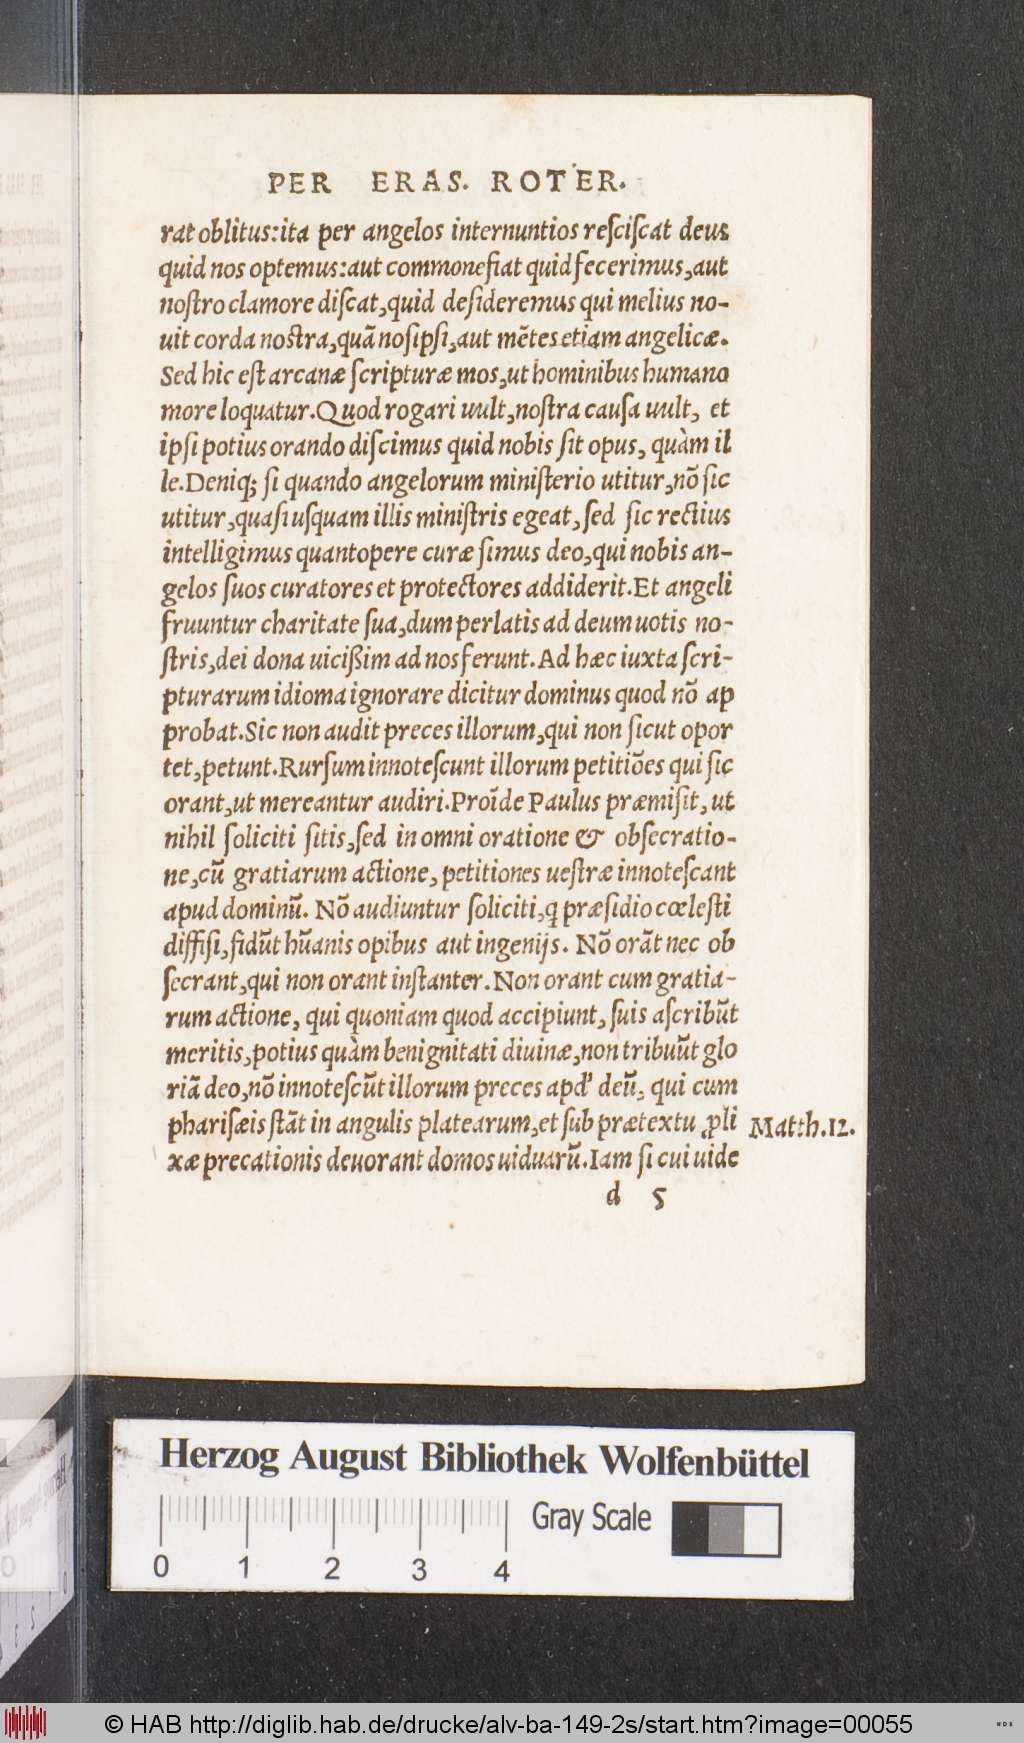 PER ERAS. ROTER.
rat oblitus:ita per angelos internuntios resciscat deus
quid nos optemus:aut commonefiat quid fecerimus,aut
nostro clamore discat,quid desideremus qui melius no-
uit corda nostra,quā nosipsi,aut mētes etiam angelicæ.
Sed hic est arcanæ scripturæ mos,ut hominibus humano
more loquatur.Quod rogari uult,nostra causa uult, et
ipsi potius orando discimus quid nobis sit opus, quàm il
le.Deniq; si quando angelorum ministerio utitur,nō sic
utitur,quasi usquam illis ministris egeat,sed sic rectius
intelligimus quantopere curæ simus deo,qui nobis an-
gelos suos curatores et protectores addiderit.Et angeli
fruuntur charitate sua,dum perlatis ad deum uotis no-
stris,dei dona uicißim ad nos ferunt.Ad hæc iuxta scri-
pturarum idioma ignorare dicitur dominus quod nō ap
probat.Sic non audit preces illorum,qui non sicut opor
tet,petunt.Rursum innotescunt illorum petitiōes qui sic
orant,ut mereantur audiri.Proīde Paulus præmisit,ut
nihil soliciti sitis,sed in omni oratione & obsecratio-
ne,cū gratiarum actione, petitiones uestræ innotescant
apud dominū. Nō audiuntur soliciti,q̨ præsidio cœlesti
diffisi,fidūt hūanis opibus aut ingenijs. Nō orāt nec ob
secrant,qui non orant instanter.Non orant cum gratia-
rum actione, qui quoniam quod accipiunt, suis ascribūt
meritis,potius quàm benignitati diuinæ,non tribuūt glo
riā deo,nō innotescūt illorum preces apd' deū, qui cum
pharisæis stāt in angulis platearum,et sub prætextu ꝓli
xæ precationis deuorant domos uiduarū.Iam si cui uide
Matth.12.
d 5
Herzog August Bibliothek Wolfenbüttel
Gray Scale
0 1 2 3 4
© HAB http://diglib.hab.de/drucke/alv-ba-149-2s/start.htm?image=00055